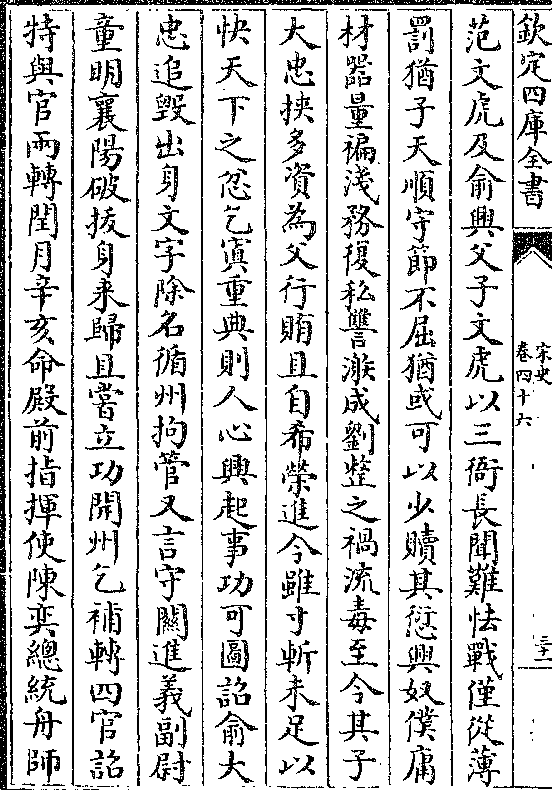 欽定四庫全書
宋史
卷四十六
范文虎及俞興父子文虎以三衙長聞難怯戰僅從薄
罰猶子天順守節不屈猶或可以少贖其愆興奴僕庸
材器量褊淺務復私讐激成劉整之禍流毒至今其子
大忠挾多資為父行賄且自希榮進今雖寸斬未足以
快天下之忿乞寘重典則人心興起事功可圖詔俞大
忠追毀出身文字除名循州拘管又言守闕進義副尉
童明襄陽破拔身来歸且嘗立功開州乞補轉四官詔
特與官兩轉閏月辛亥命殿前指揮使陳奕總統舟師